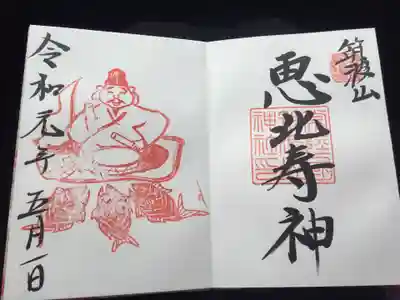 筑波山
恵比寿神
令和元年
五月一日